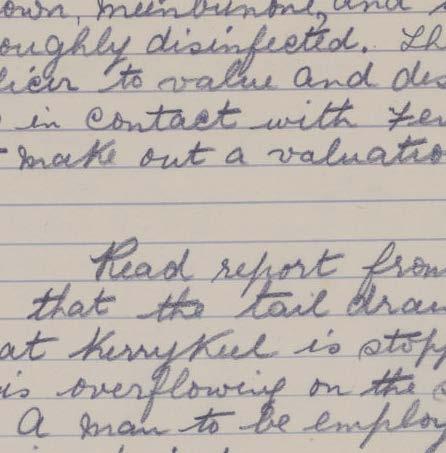 own, meenbunone, and
oughly disinfected. Th
ficer to value and des
in contact with Fev
make out a valuatio
Read report from
that the tail drain
at Kerrykeel is stopp
is overflowing on the
A man to be employ